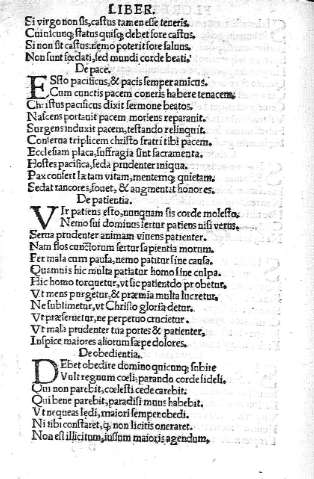 LIBER.
Si virgo non sis, castus tamen esse teneris.
Cuiuicunq; status quisq; debet fore castus.
Si non sit castus: nemo poterit fore saluus.
Non sunt fœdati, sed mundi corde beati.
De pace.
ESto pacificus, & pacis semper amicus.
Cum cunctis pacem coneris habere tenacem.
Christus pacificus dixit sermone beatos.
Nascens portauit pacem moriens reparauit.
Surgens induxit pacem, testando relinquit.
Conserua triplicem christo fratri tibi pacem.
Ecclesiam placa, suffragia sint sacramenta.
Hostes pacifica, seda prudenter iniqua.
Pax confert lætam vitam, mentemq; quietam.
Sedat rancores, fouet, & augmentat honores.
De patientia.
VIr patiens esto, nunquam sis corde molesto.
Nemo sui dominus fertur patiens nisi verus.
Serua prudenter animam viuens patienter.
Nam flos cunctorum fertur sapientia morum.
Fer mala cum pausa, nemo patitur sine causa.
Quamuis hic multa patiatur homo sine culpa.
Hic homo torquetur, vt sic patiendo probetur.
Vt mens purgetur, & præmia multa lucretur.
Ne sublimetur, vt Christo gloria detur.
Vt præseruetur, ne perpetuo crucietur.
Vt mala prudenter tua portes & patienter,
Inspice maiores aliorum sæpe dolores.
De obedientia.
DEbet obedire domino quicunq; subire
Vult regnum cœli: parando corde fideli.
Qui non parebit, cœlesti cede carebit.
Qui bene parebit, paradisi munus habebit.
Vt nequeas lędi, maiori semper obedi.
Ni tibi constaret, q̃ non licitis oneraret.
Non est illicitum, iussum maioris agendum.